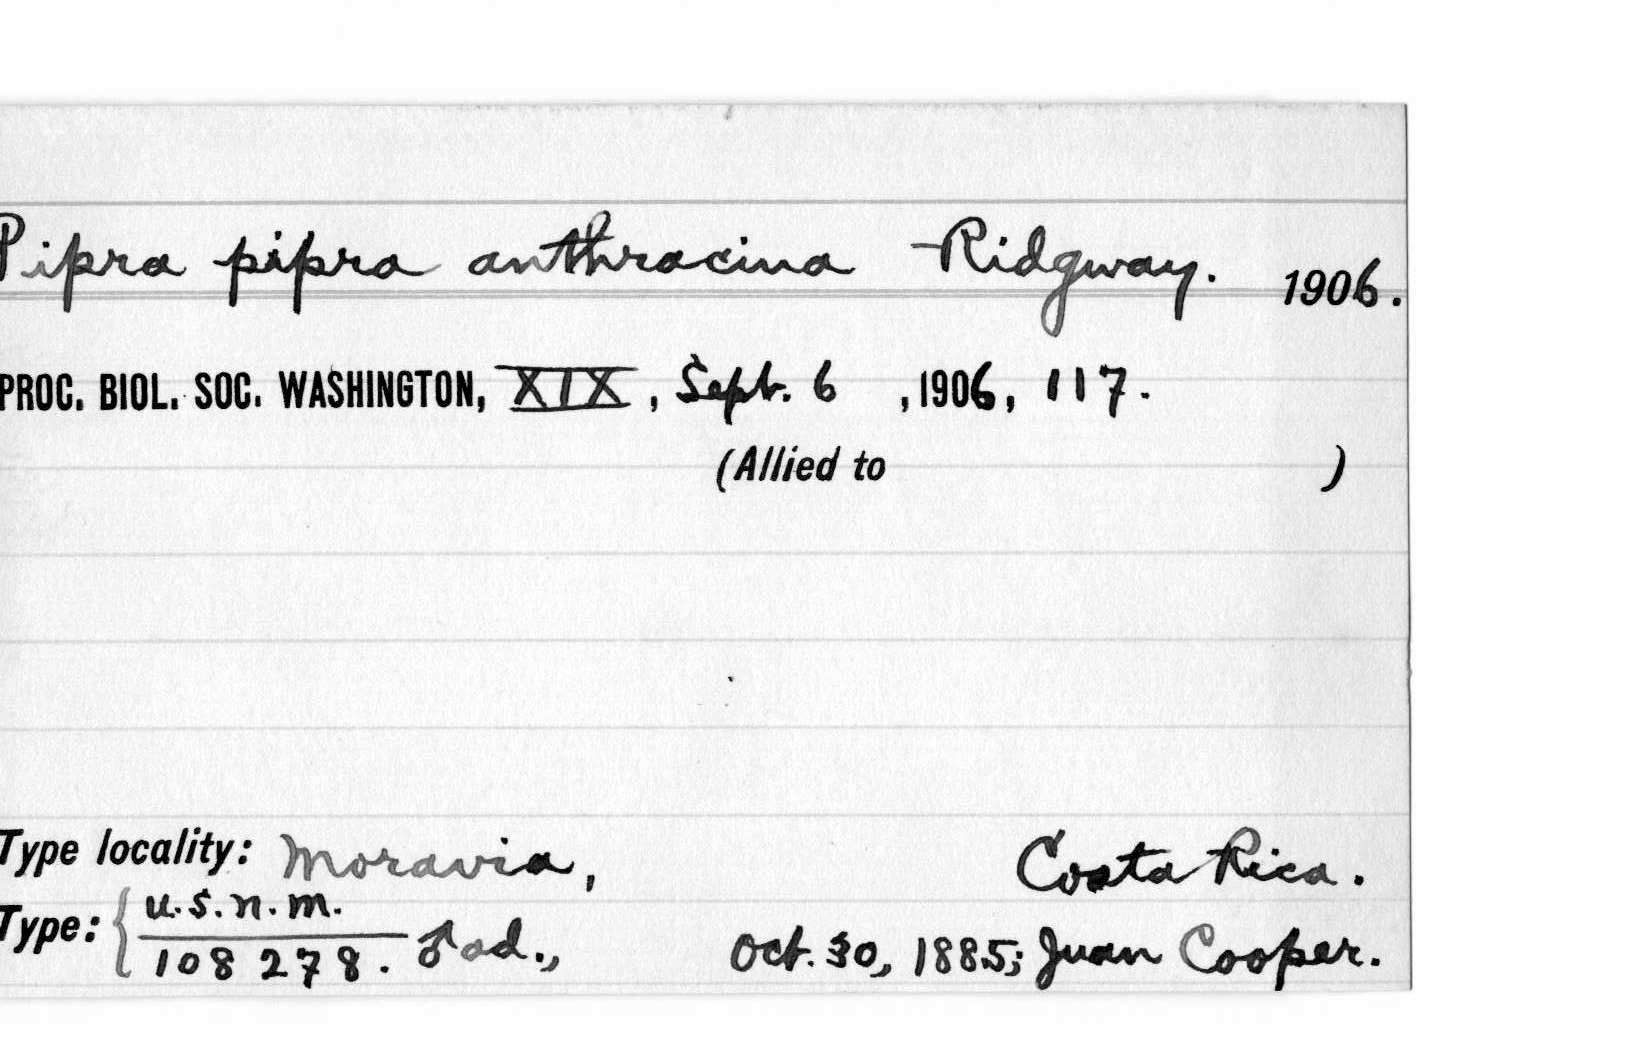 Pipra pipra anthracina Ridgway. 1906.
PROC. BIOL. SOC. WASHINGTON, XIX, Sept. 6 , 1906, 117.
(Allied to )
Type locality: Moravia, Costa Rica.
Type: { U.S.N.M. 
108278. ♂ ad., Oct. 30, 1885; Juan Cooper.